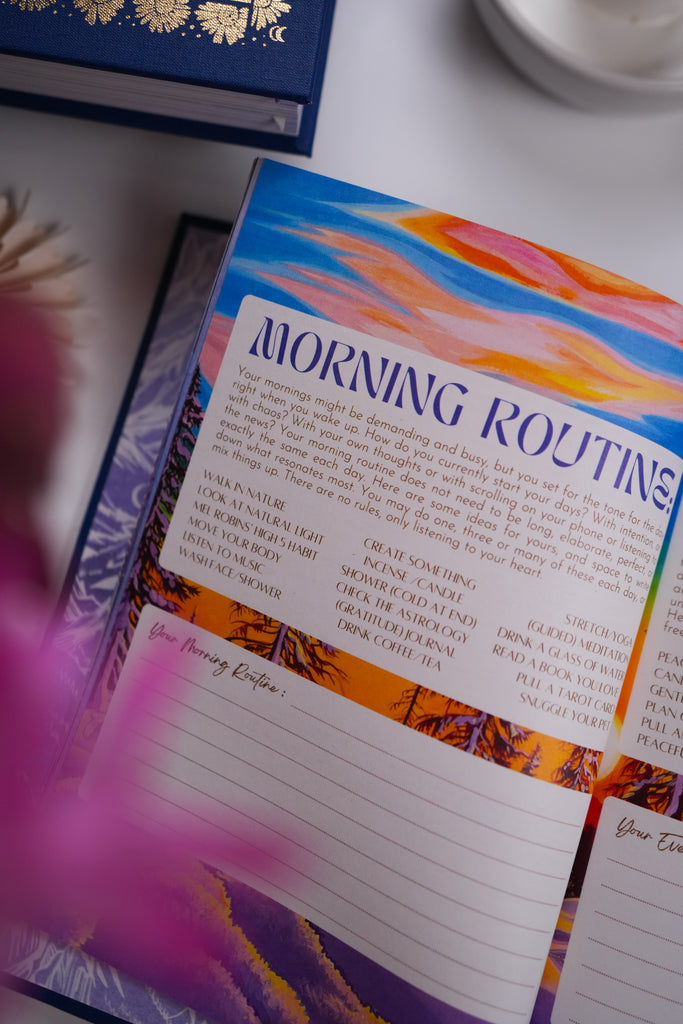 MORNING ROUTINE:
Your mornings might be demanding and busy, but you set for the tone for the
right when you wake up. How do you currently start your days? With intention,
with chaos? With your own thoughts or with scrolling on your phone or listening to
the news? Your morning routine does not need to be long, elaborate, perfect,
exactly the same each day. Here are some ideas for yours, and space to write
down what resonates most. You may do one, three or many of these each day, or
mix things up. There are no rules, only listening to your heart.
WALK IN NATURE
LOOK AT NATURAL LIGHT
MEL ROBINS' HIGH 5 HABIT
MOVE YOUR BODY
LISTEN TO MUSIC
WASH FACE/SHOWER
CREATE SOMETHING
INCENSE / CANDLE
SHOWER (COLD AT END)
CHECK THE ASTROLOGY
(GRATITUDE) JOURNAL
DRINK COFFEE/TEA
STRETCH/YOGA
(GUIDED) MEDITATION
DRINK A GLASS OF WATER
READ A BOOK YOU LOVE
PULL A TAROT CARD
SNUGGLE YOUR PET
Your Morning Routine:
PEAC
CAN
GENT
PLAN
PULL A
PEACEFU
Your Eve